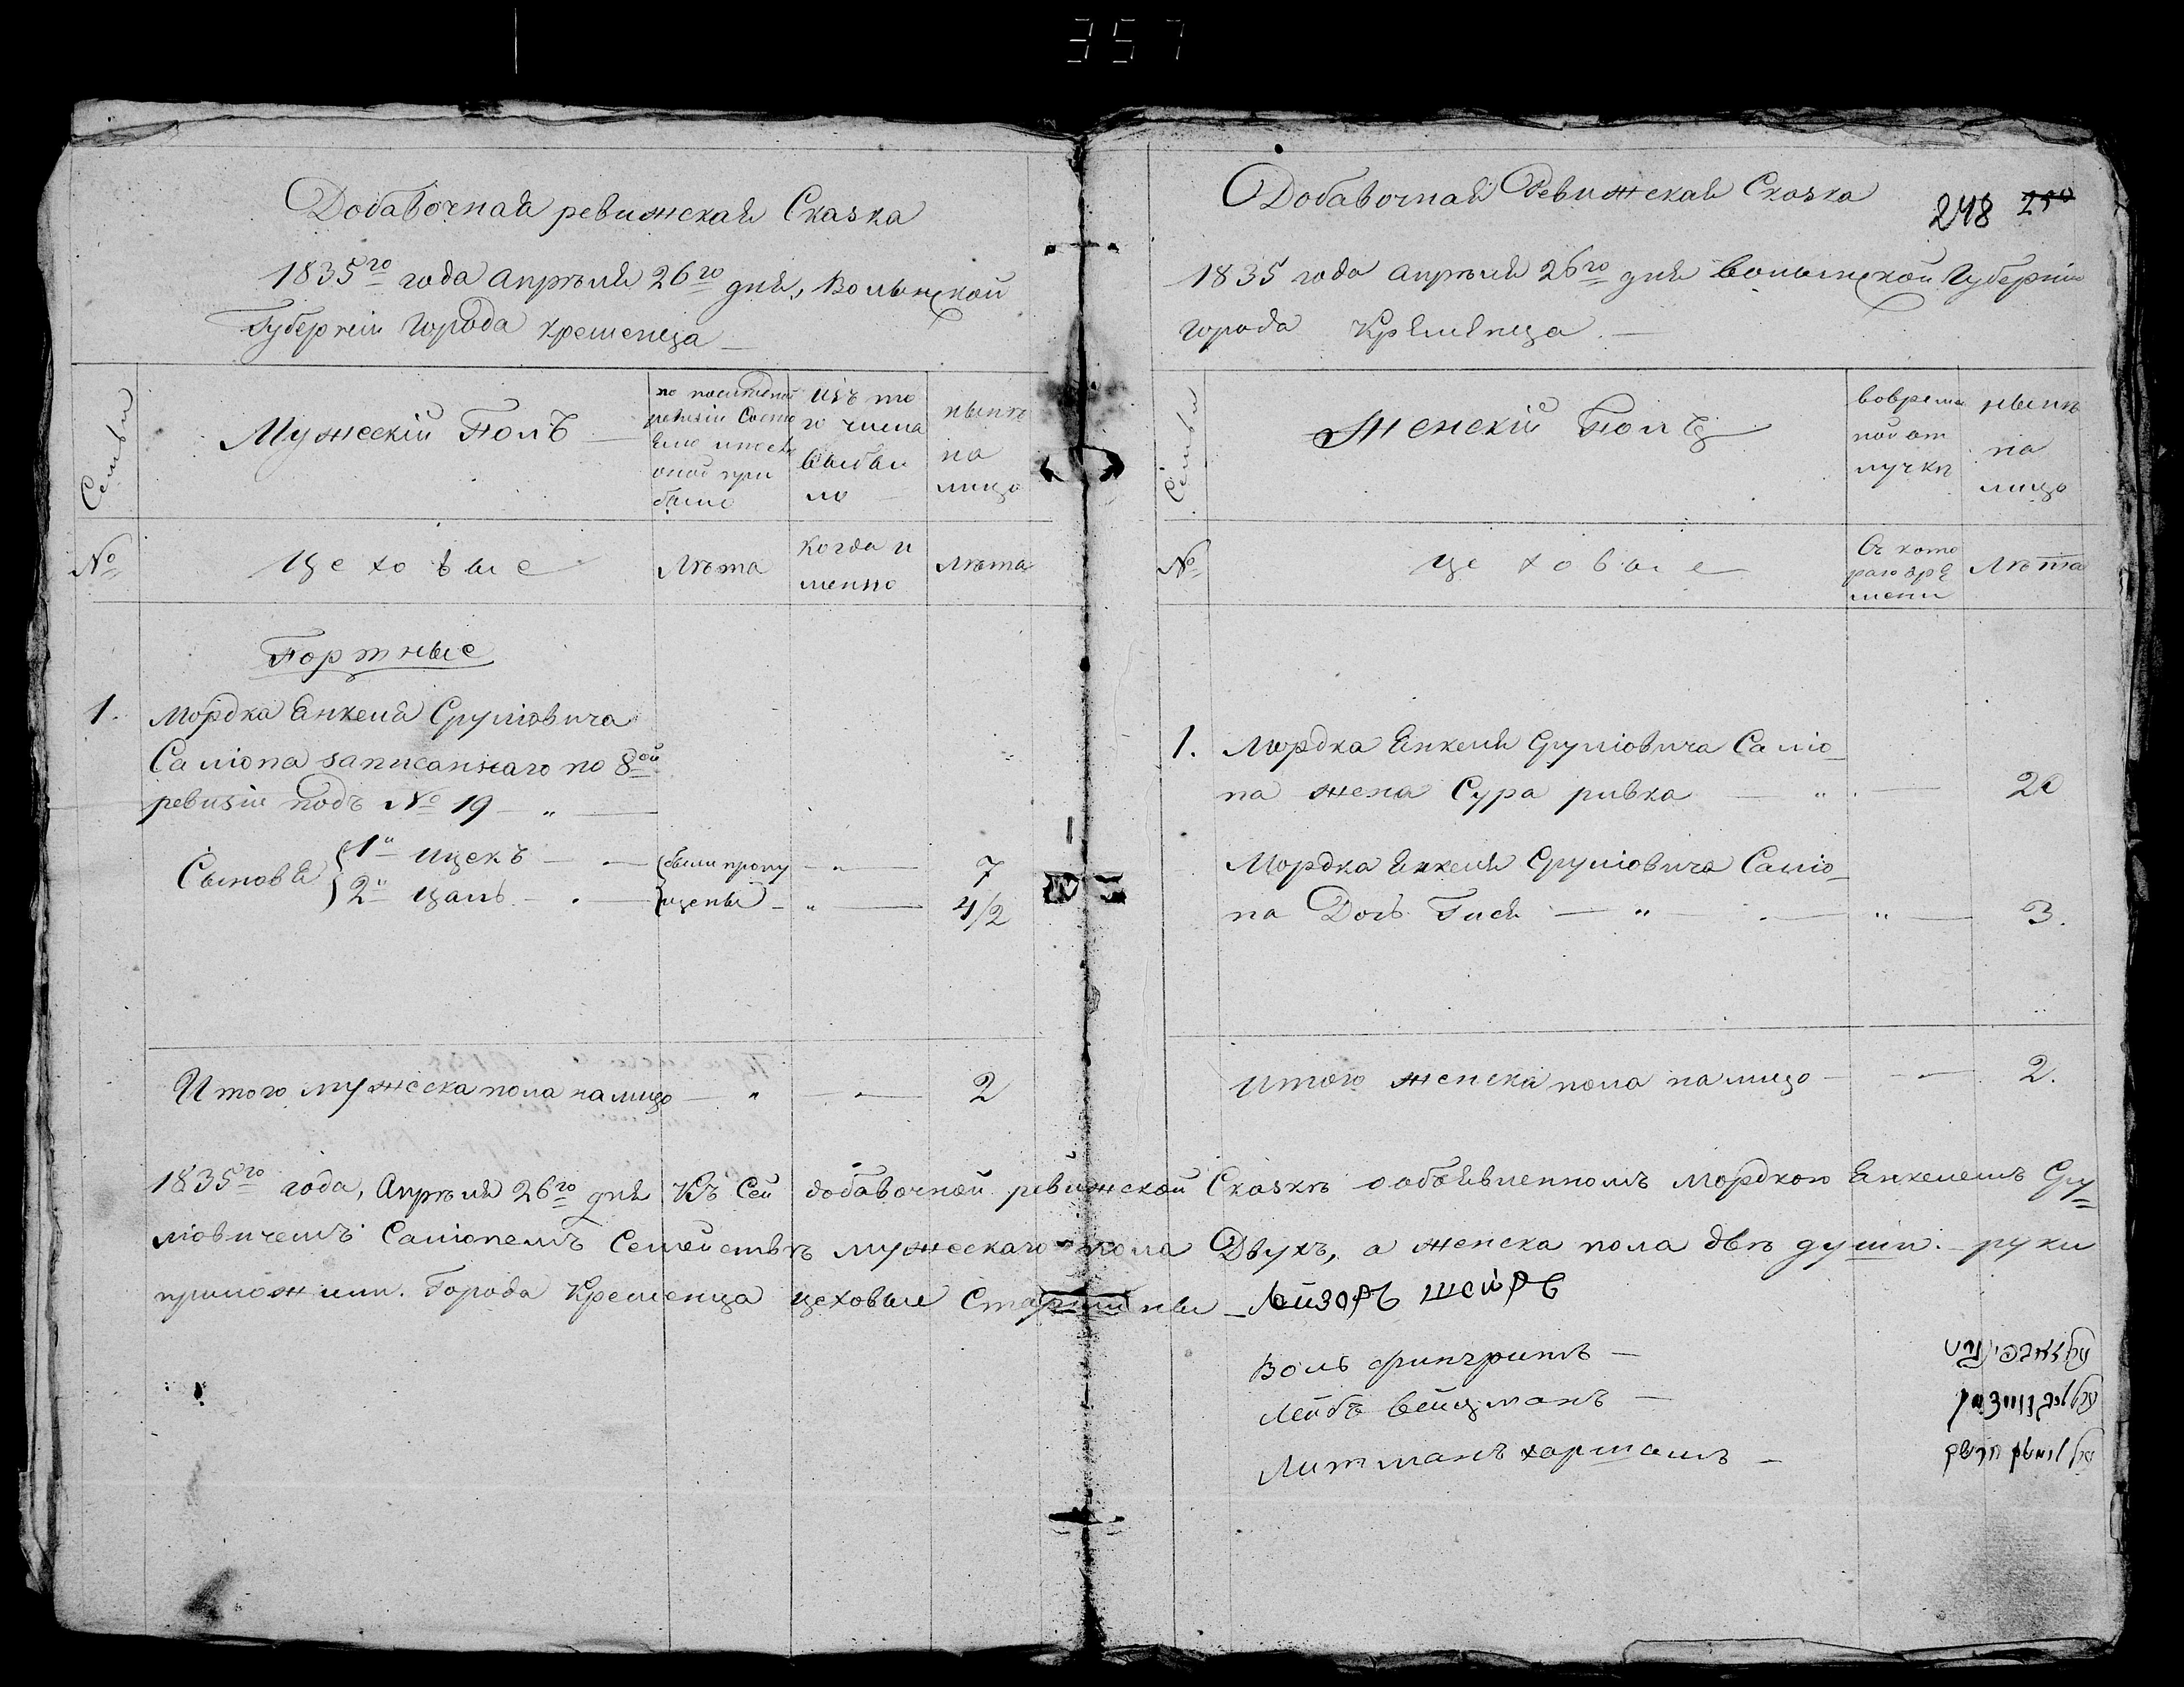 357
Добавочная ревижская Сказка
1835го года Апрѣля 26го дня, Волынской
Губерніи города Кременца
Семьи
Мужескій Полъ
по последней
ревизіи состо
яло и после
оной при
было
изъ то
го числа
выбы
ло
нынѣ
на
лицо
№
Цеховые
Лѣта
Когда и
менно
Лѣта
Портные
1. Мордка Енкеля Срулiовича
Самiопа записаннаго по 8ой
ревизіи подъ № 19
Сыновья
1й Ицекъ были пропу 7
2й щены 4/2
Итого мужеска пола налицо 2
Добавочная Ревижская Сказка
248 250
1835 года Апрѣля 26го дня Волынской Губерніи
города Кременца
Семьи
Женскій Полъ
вовремя
ной от
лучкѣ
нынѣ
на
лицо
№
Цеховые
Съ кото
раго вре
мени
Лѣта
1. Мордка Енкеля Срулiовича Самiо
па жена Сура ривка 20
Мордка Енкеля Срулiовича Самiо
па Дочь Гися 3.
Итого женска пола налицо 2.
1835го года, Апрѣля 26го дня Къ Сей добавочной ревижской Сказкѣ о объявленномъ Мордкою Енкелемъ Сру
лiовичемъ Самiопемъ Семействѣ мужескаго пола Двухъ, а женска пола двѣ души. руки
приложили. Города Кременца цеховые Старшины Лейзоръ шейръ
Воль
Лейбъ Вейцманъ
Литманъ хоршамъ